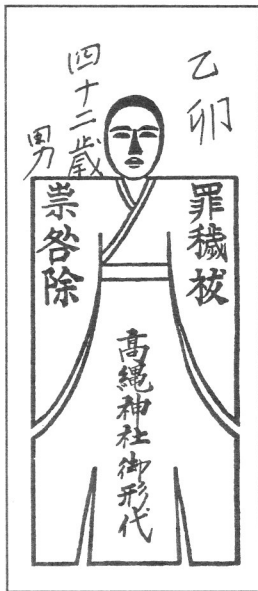 乙卯
四十二歳
男
罪穢祓
祟咎除
高縄神社御形代